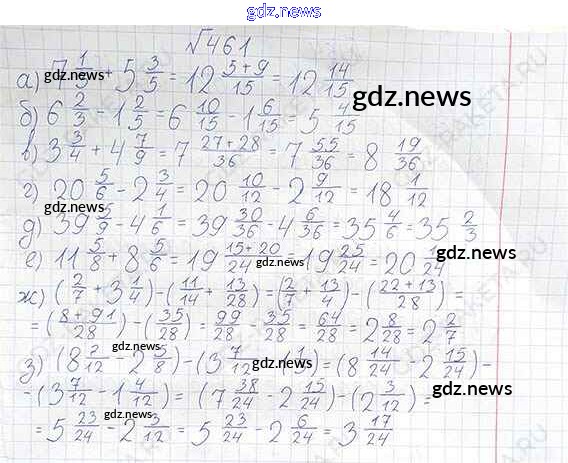 gdz.news
gdz.news
√461
а) 7 1/3 + 5 3/5 = 12 5+9/15 = 12 14/15
gdz.news
gdz.news
б) 6 2/3 - 1 2/5 = 6 10/15 - 1 6/15 = 5 4/15
в) 3 3/4 + 4 7/9 = 7 27+28/36 = 7 55/36 = 8 19/36
г) 20 5/6 - 2 3/4 = 20 10/12 - 2 9/12 = 18 1/12
gdz.news
д) 39 5/9 - 4 1/6 = 39 30/36 - 4 6/36 = 35 4/6 = 35 2/3
е) 11 5/8 + 8 5/6 = 19 15+20/24 = 19 25/24 = 20 1/24
gdz.news
gdz.news
ж) (2/7 + 3 1/4) - (11/14 + 13/28) = (2/7 + 13/4) - (22+13/28) =
= (8+91/28) - (35/28) = 99/28 - 35/28 = 64/28 = 2 8/28 = 2 2/7
gdz.news
gdz.news
з) (8 7/12 - 2 5/8) - (3 7/12 - 1 1/3) = (8 14/24 - 2 15/24) -
- (3 7/12 - 1 4/12) = (7 38/24 - 2 15/24) - (2 3/12) =
gdz.news
gdz.news
= 5 23/24 - 2 3/12 = 5 23/24 - 2 6/24 = 3 17/24